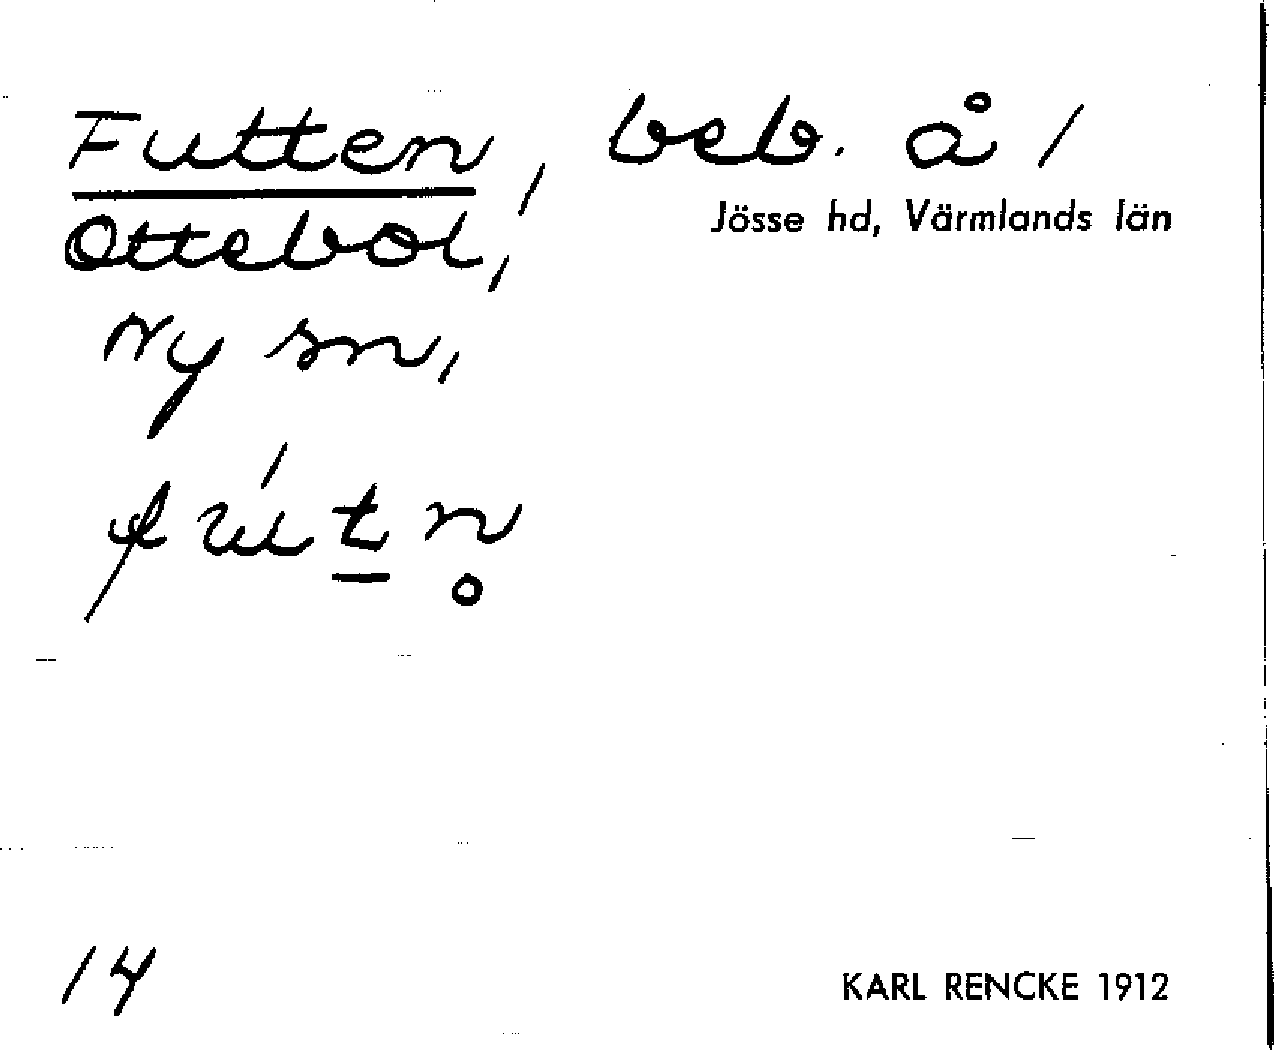 Futten, beb. å /
Jösse hd, Värmlands län
Ottebol,
Ny sn,
14
KARL RENCKE 1912